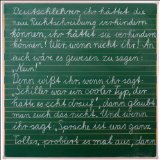 Deutschlehrer, ihr hättet die
neue Rechtschreibung verhindern
können, ihr hättet sie verhindern
können! Wer, wenn nicht ihr! An
euch wäre es gewesen zu sagen:
Nein!"
Denn wißt ihr, wenn ihr sagt,
"Schiller war ein cooler Typ, der
hatte es echt drauf", dann glaubt
man euch das nicht. Und wenn
ihr sagt, "Sprache ist was ganz
Tolles, probiert es mal aus", dann